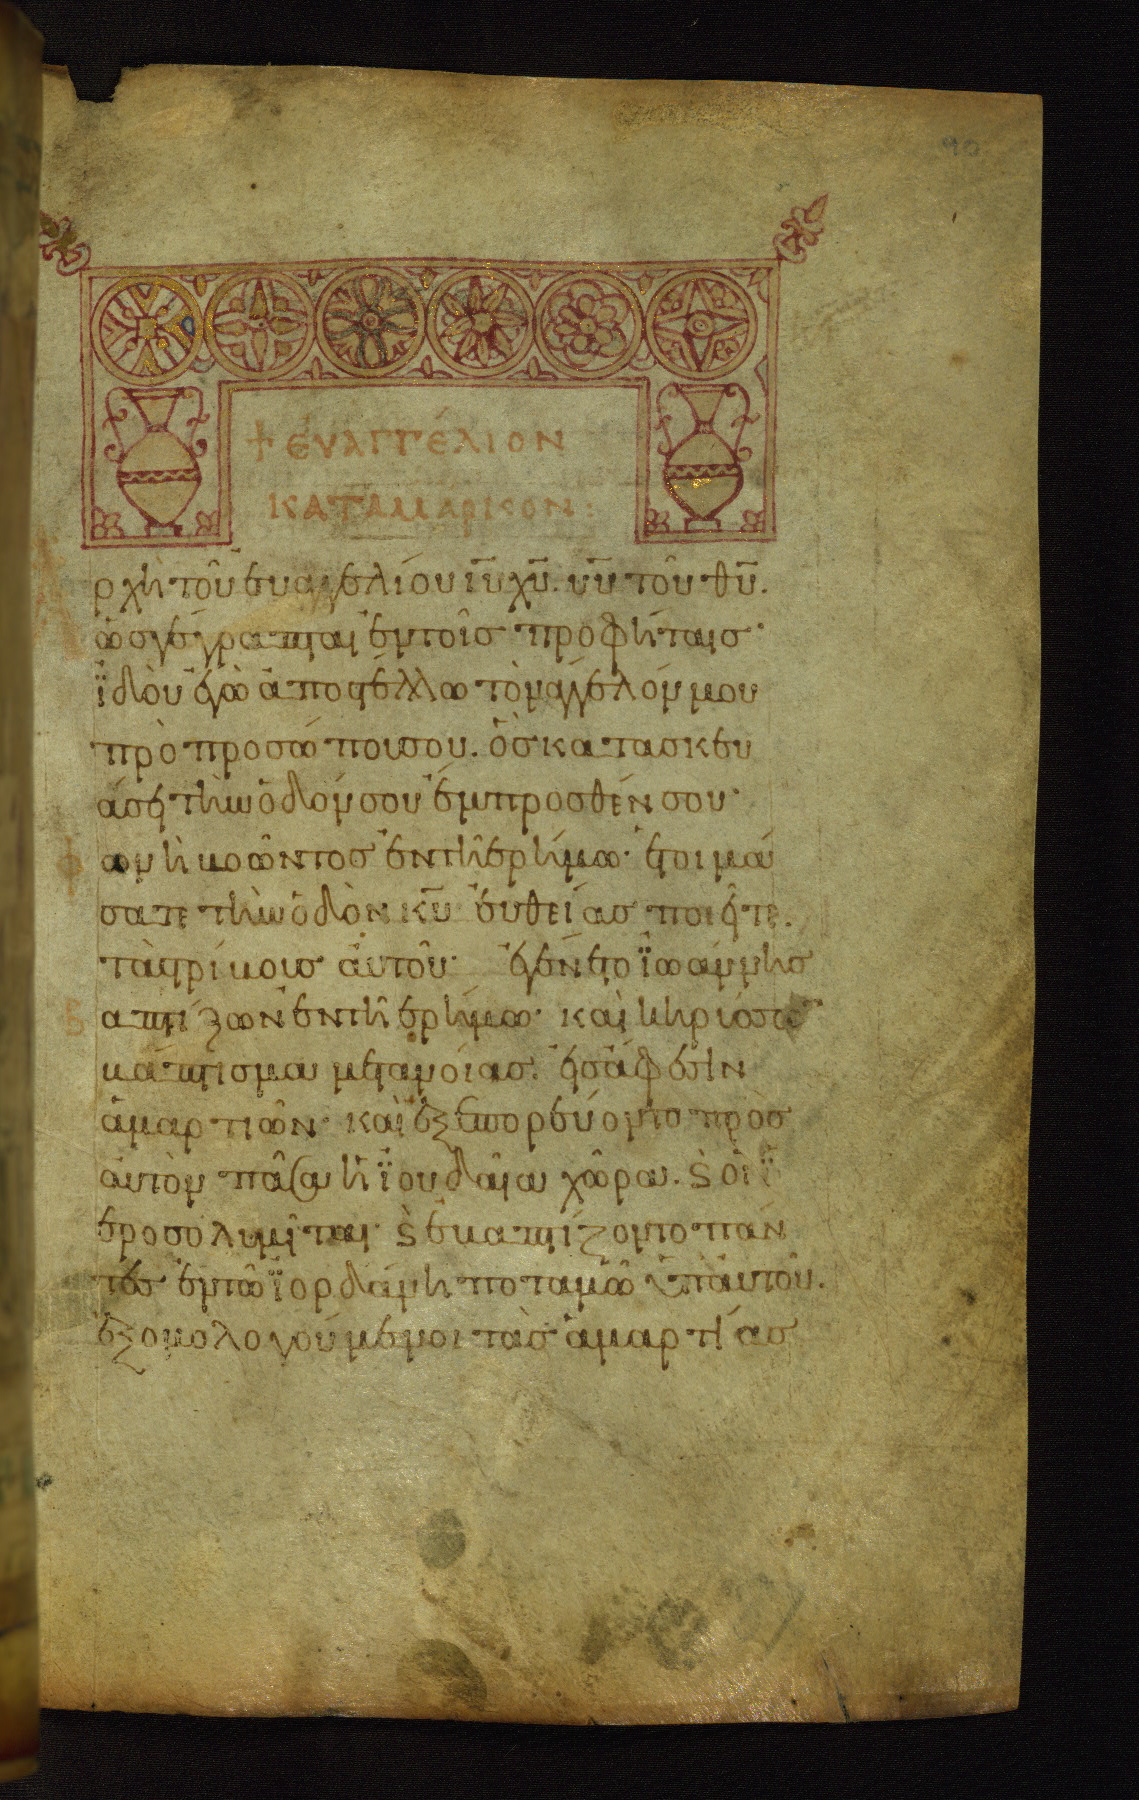 90
+ ΕΥΑΓΓΕΛΙΟΝ
ΚΑΤΑ ΜΑΡΚΟΝ:
ρχὴ τοῦ εὐαγγελίου ἰυ̅ χυ̅. υυ̅ τοῦ θυ̅.
ὡς γέγραπται ἐν τοῖς προφήταις·
ϊδοὺ ἐγὼ ἀποστέλλω τὸν ἄγγελόν μου
πρὸ προσώπου σου. ὃς κατασκευ
άσει τὴν ὁδόν σου ἔμπροσθέν σου·
Φ ων ὴ βοῶντος ἐν τῆ ἐρήμω· ἑτοιμά
σατε τὴν ὁδὸν κυ̅ εὐθείας ποιεῖτε.
τὰς τρίβους ἀυτοῦ· ἐγένετο ϊωάννης
Β απτίζων ἐν τῆ ἐρήμω· καὶ κηρύσσων
βάπτισμα μετανοίας. εἰς ἄφεσιν
ἁμαρτιῶν· καὶ ἐξεπορεύοντο πρὸς
ἀυτὸν πᾶσα ἡ ϊουδαία χώρα. ϛ οἱ ϊ
εροσολυμῖται· ϛ ἐβαπτίζοντο πάν
τες ἐν τῶ ϊορδάνη ποταμῶ ὑπ' ἀυτοῦ.
ἐξομολογούμενοι τὰς ἁμαρτίας